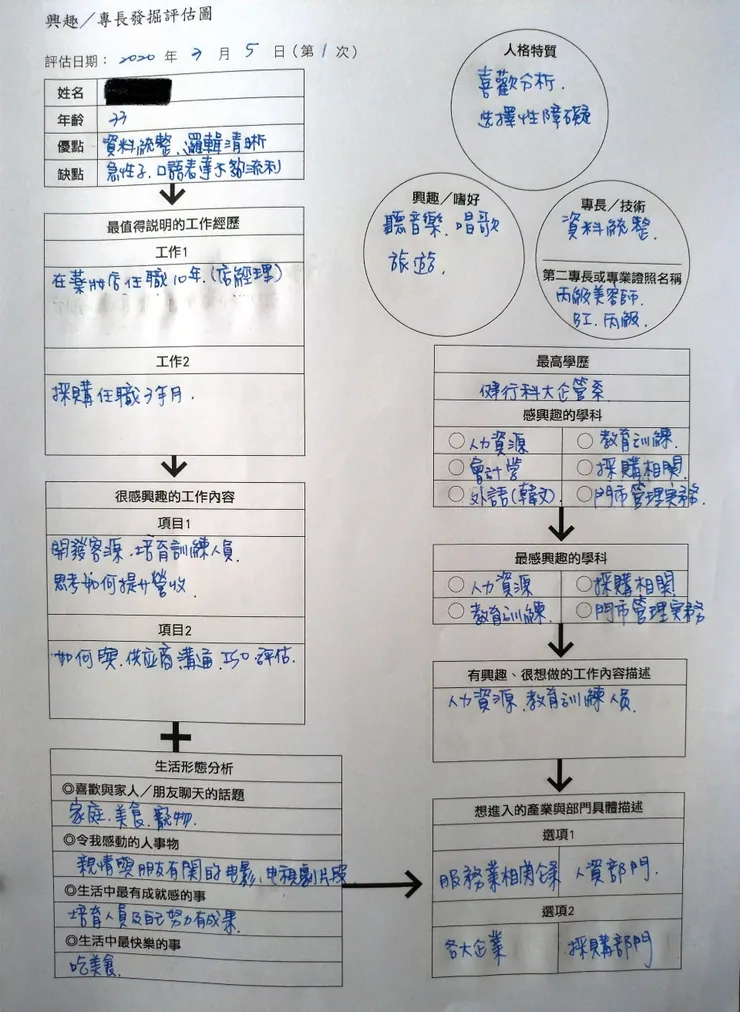 興趣／專長發掘評估圖
評估日期：2020 年 3 月 5 日（第 1 次）
姓名
年齡 33
優點 資料統整、邏輯清晰
缺點 急性子、口語表達不夠流利
最值得說明的工作經歷
工作1
在藥妝店任職10年.(店經理)
工作2
採購任職3年月.
很感興趣的工作內容
項目1
開發客源.培育訓練人員.
思考如何提升營收.
項目2
如何與.供应商溝通.ISO.評估.
生活形態分析
◎喜歡與家人／朋友聊天的話題
家庭.美食.寵物.
◎令我感動的人事物
親情與朋友有関的电影、电視劇片段
◎生活中最有成就感的事
培育人員及自己努力有成果.
◎生活中最快樂的事
吃美食.
人格特質
喜歡分析.
选擇性障礙
興趣／嗜好
聽音樂.唱歌
旅遊.
專長／技術
資料統整.
第二專長或專業證照名稱
丙級美容師.
BI.丙級.
最高學歷
健行科大企管系
感興趣的學科
○人力資源 ○教育訓練.
○會計学 ○採購相関.
○外語(韓文). ○門市管理実務.
最感興趣的學科
○人力資源 ○採購相関.
○教育訓練. ○門市管理実務
有興趣、很想做的工作內容描述
人力資源.教育訓練人員.
想進入的產業與部門具體描述
選項1
服務業相関企業 人資部門.
選項2
各大企業 採購部門